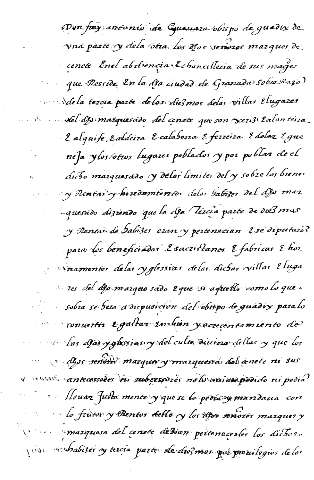 Don fray antonio de Guevara obispo de guadix de
una parte y dela otra los dhos señores marques de
cenete En el abdiencia E chancilleria de sus mages
que Reside En la dha ciudad de Granada sobre Razon
de la tercia parte de los diezmos delas villas E lugares
del dho marquesado del cenete que son xeriz E alanteira
E alquife E aldeira E calahorra E ferreira E dolar E que
neja y los otros lugares poblados y por poblar de el
dicho marquesado y delos limites del y sobre los bienes
y Rentas y heredamientos delos habizes del dho mar
quesado diziendo que la dha Tercia parte de diezmos
y Rentas de habizes eran y pertenecian E se deputaron
para los beneficiados E sacristanes E fabricas E hor
namentos delas yglesias de las dichas villas E luga
res del dho marquesado E que si aquello como lo que
sobra se heta a disposicion del obispo de guadix para lo
convertir E gastar En bien y acrecentamiento de
las dhas yglesias y del culto divino dellas y que los
dhos señores marques y marquesa del cenete ni sus
antecesores ni subcesores no lo avian podido ni podian
llevar Justa mente y que se lo pedia y mandacia con
los frutos y Rentas dello y los dhos señores marques y
marquesa del cenete dezian pertenecerles los dichos
habizes y tercia parte de diezmos por previlegios de los